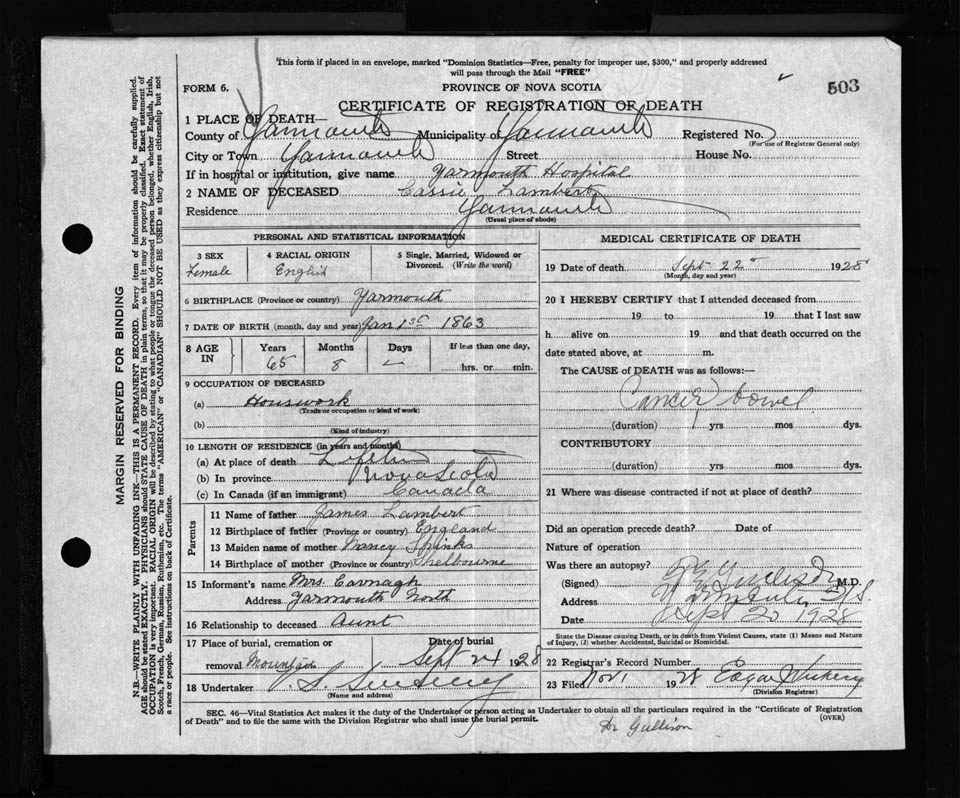 This form if placed in an envelope, marked "Dominion Statistics—Free, penalty for improper use, $300," and properly addressed
will pass through the Mail "FREE"
503
FORM 6.
PROVINCE OF NOVA SCOTIA
CERTIFICATE OF REGISTRATION OF DEATH
1 PLACE OF DEATH—
County of Yarmouth Municipality of Yarmouth Registered No.
(For use of Registrar General only)
City or Town Yarmouth Street House No.
If in hospital or institution, give name Yarmouth Hospital
2 NAME OF DECEASED Cassie Lambert
Residence Yarmouth
(Usual place of abode)
PERSONAL AND STATISTICAL INFORMATION
3 SEX
Female
4 RACIAL ORIGIN
English
5 Single, Married, Widowed or
Divorced. (Write the word)
6 BIRTHPLACE (Province or country) Yarmouth
7 DATE OF BIRTH (month, day and year) Jan 1st 1863
8 AGE IN
Years Months Days If less than one day,
65 8 — hrs. or min.
9 OCCUPATION OF DECEASED
(a) Houswork
(Trade or occupation or kind of work)
(b)
(Kind of industry)
10 LENGTH OF RESIDENCE (in years and months)
(a) At place of death
(b) In province Nova Scotia
(c) In Canada (if an immigrant) Canada
Parents
11 Name of father James Lambert
12 Birthplace of father (Province or country) England
13 Maiden name of mother Nancy Spinks
14 Birthplace of mother (Province or country) Shelbourne
15 Informant's name Mrs. Cavnagh
Address Yarmouth North
16 Relationship to deceased Aunt
17 Place of burial, cremation or Date of burial
removal Mountain Sept 24 1928
18 Undertaker
(Name and address)
MEDICAL CERTIFICATE OF DEATH
19 Date of death Sept 22" 1928
(Month, day and year)
20 I HEREBY CERTIFY that I attended deceased from
19 to 19 that I last saw
h alive on 19 and that death occurred on the
date stated above, at m.
The CAUSE of DEATH was as follows:—
Cancer bowel
(duration) 1 yrs mos dys.
CONTRIBUTORY
(duration) yrs mos dys.
21 Where was disease contracted if not at place of death?
Did an operation precede death? Date of
Nature of operation
Was there an autopsy?
(Signed) M.D.
Address
Date Sept 1928
State the Disease causing Death, or in death from Violent Causes, state (1) Means and Nature
of Injury, (2) whether Accidental, Suicidal or Homicidal.
22 Registrar's Record Number
23 Filed Nov 1 1928 Edgar Vickery
(Division Registrar)
SEC. 46—Vital Statistics Act makes it the duty of the Undertaker or person acting as Undertaker to obtain all the particulars required in the "Certificate of Registration
of Death" and to file the same with the Division Registrar who shall issue the burial permit.
(OVER)
Dr Gullison
MARGIN RESERVED FOR BINDING
N.B.—WRITE PLAINLY WITH UNFADING INK—THIS IS A PERMANENT RECORD. Every item of information should be carefully supplied.
AGE should be stated EXACTLY. PHYSICIANS should STATE CAUSE OF DEATH in plain terms, so that it may be properly classified. Exact statement of
OCCUPATION is very important. RACIAL ORIGIN will be described by stating to what people or tongue the deceased person belonged, whether English, Irish,
Scotch, French, German, Russian, Ruthenian, etc. The terms "AMERICAN" or "CANADIAN" SHOULD NOT BE USED as they express citizenship but not
a race or people. See instructions on back of Certificate.